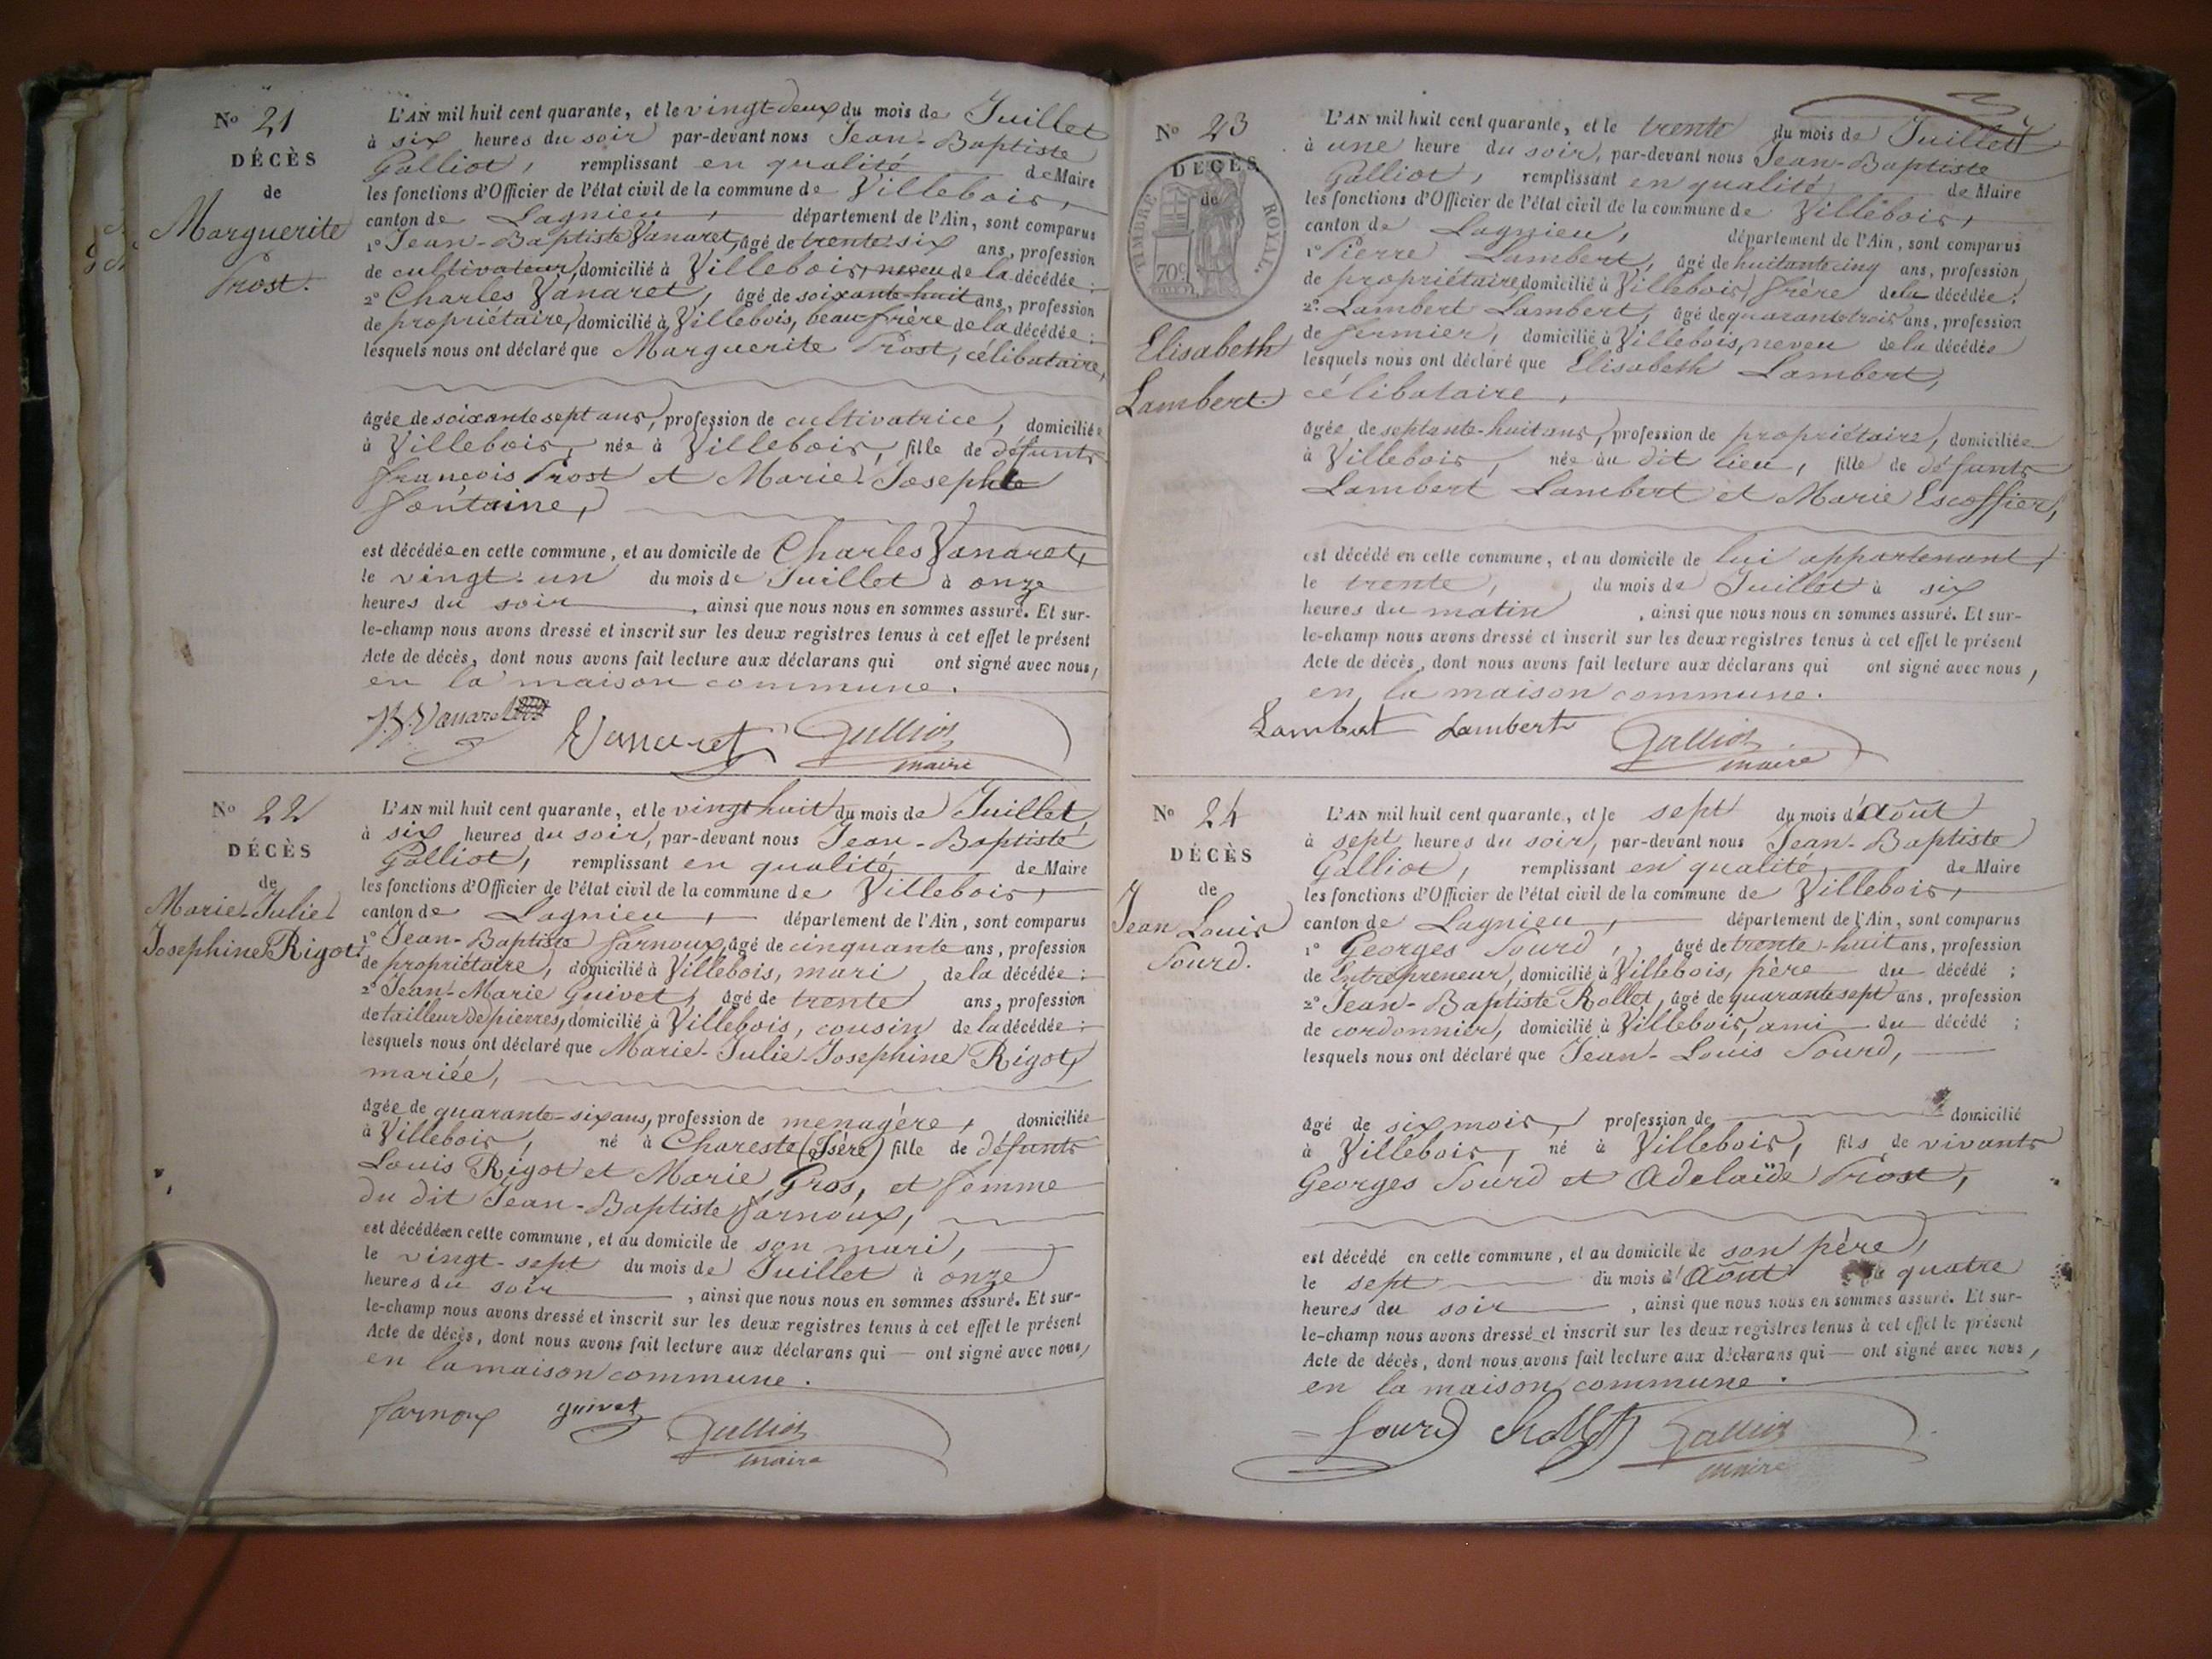 N° 21
DÉCÈS
de
Marguerite
Prost.
L'AN mil huit cent quarante, et le vingt-deux du mois de Juillet
à six heures du soir par-devant nous Jean-Baptiste
Galliot, remplissant en qualité de Maire
les fonctions d'Officier de l'état civil de la commune de Villebois,
canton de Lagnieu, département de l'Ain, sont comparus
1° Jean-Baptiste Vanaret, âgé de trente-six ans, profession
de cultivateur, domicilié à Villebois, neveu de la décédée;
2° Charles Vanaret, âgé de soixante-huit ans, profession
de propriétaire, domicilié à Villebois, beau-frère de la décédée:
lesquels nous ont déclaré que Marguerite Prost, célibataire,
âgée de soixante sept ans, profession de cultivatrice, domiciliée
à Villebois, née à Villebois, fille de défunts
françois Prost et Marie-Josephte
fontaine,
est décédée en cette commune, et au domicile de Charles Vanaret,
le vingt-un du mois de Juillet à onze
heures du soir, ainsi que nous nous en sommes assuré. Et sur-
le-champ nous avons dressé et inscrit sur les deux registres tenus à cet effet le présent
Acte de décès, dont nous avons fait lecture aux déclarans qui ont signé avec nous,
en la maison commune.
Vanaret Galliot
maire
N° 22
DÉCÈS
de
Marie-Julie-
Josephine Rigot.
L'AN mil huit cent quarante, et le vingt huit du mois de Juillet,
à six heures du soir, par-devant nous Jean-Baptiste
Galliot, remplissant en qualité de Maire
les fonctions d'Officier de l'état civil de la commune de Villebois,
canton de Lagnieu, département de l'Ain, sont comparus
1° Jean-Baptiste farnoux, âgé de cinquante ans, profession
de propriétaire, domicilié à Villebois, mari de la décédée;
2° Jean-Marie Guivet, âgé de trente ans, profession
de tailleur de pierres, domicilié à Villebois, cousin de la décédée:
lesquels nous ont déclaré que Marie-Julie-Josephine Rigot,
mariée,
âgée de quarante-six ans, profession de menagère, domiciliée
à Villebois, né à Chareste (Isère) fille de défunts
Louis Rigot et Marie Gros, et femme
du dit Jean-Baptiste farnoux,
est décédée en cette commune, et au domicile de son mari,
le vingt-sept du mois de Juillet à onze
heures du soir, ainsi que nous nous en sommes assuré. Et sur-
le-champ nous avons dressé et inscrit sur les deux registres tenus à cet effet le présent
Acte de décès, dont nous avons fait lecture aux déclarans qui — ont signé avec nous,
en la maison commune.
farnoux guivet Galliot
maire
N° 23
DÉCÈS
de
TIMBRE ROYAL.
70c
Elisabeth
Lambert.
L'AN mil huit cent quarante, et le trente du mois de Juillet
à une heure du soir, par-devant nous Jean-Baptiste
Galliot, remplissant en qualité de Maire
les fonctions d'Officier de l'état civil de la commune de Villebois,
canton de Lagnieu, département de l'Ain, sont comparus
1° Pierre Lambert, âgé de huitante cinq ans, profession
de propriétaire, domicilié à Villebois, frère de la décédée;
2° Lambert Lambert, âgé de quarante trois ans, profession
de fermier, domicilié à Villebois, neveu de la décédée
lesquels nous ont déclaré que Elisabeth Lambert,
célibataire,
âgée de septante-huit ans, profession de propriétaire, domiciliée
à Villebois, née au dit lieu, fille de défunts
Lambert Lambert et Marie Escoffier,
est décédé en cette commune, et au domicile de lui appartenant,
le trente, du mois de Juillet à six
heures du matin, ainsi que nous nous en sommes assuré. Et sur-
le-champ nous avons dressé et inscrit sur les deux registres tenus à cet effet le présent
Acte de décès, dont nous avons fait lecture aux déclarans qui ont signé avec nous,
en la maison commune.
Lambert Lambert Galliot
maire
N° 24
DÉCÈS
de
Jean Louis
Sourd.
L'AN mil huit cent quarante, et le sept du mois d'Août
à sept heures du soir, par-devant nous Jean-Baptiste
Galliot, remplissant en qualité de Maire
les fonctions d'Officier de l'état civil de la commune de Villebois,
canton de Lagnieu, département de l'Ain, sont comparus
1° Georges Sourd, âgé de trente-huit ans, profession
de Entrepreneur, domicilié à Villebois, père du décédé;
2° Jean-Baptiste Rollet, âgé de quarante sept ans, profession
de cordonnier, domicilié à Villebois, ami du décédé;
lesquels nous ont déclaré que Jean-Louis Sourd,
âgé de six mois, profession de domicilié
à Villebois, né à Villebois, fils de vivants
Georges Sourd et Adelaïde Prost,
est décédé en cette commune, et au domicile de son père,
le sept du mois d'Août à quatre
heures du soir, ainsi que nous nous en sommes assuré. Et sur-
le-champ nous avons dressé et inscrit sur les deux registres tenus à cet effet le présent
Acte de décès, dont nous avons fait lecture aux déclarans qui — ont signé avec nous,
en la maison commune.
Sourd Rollet Galliot
maire